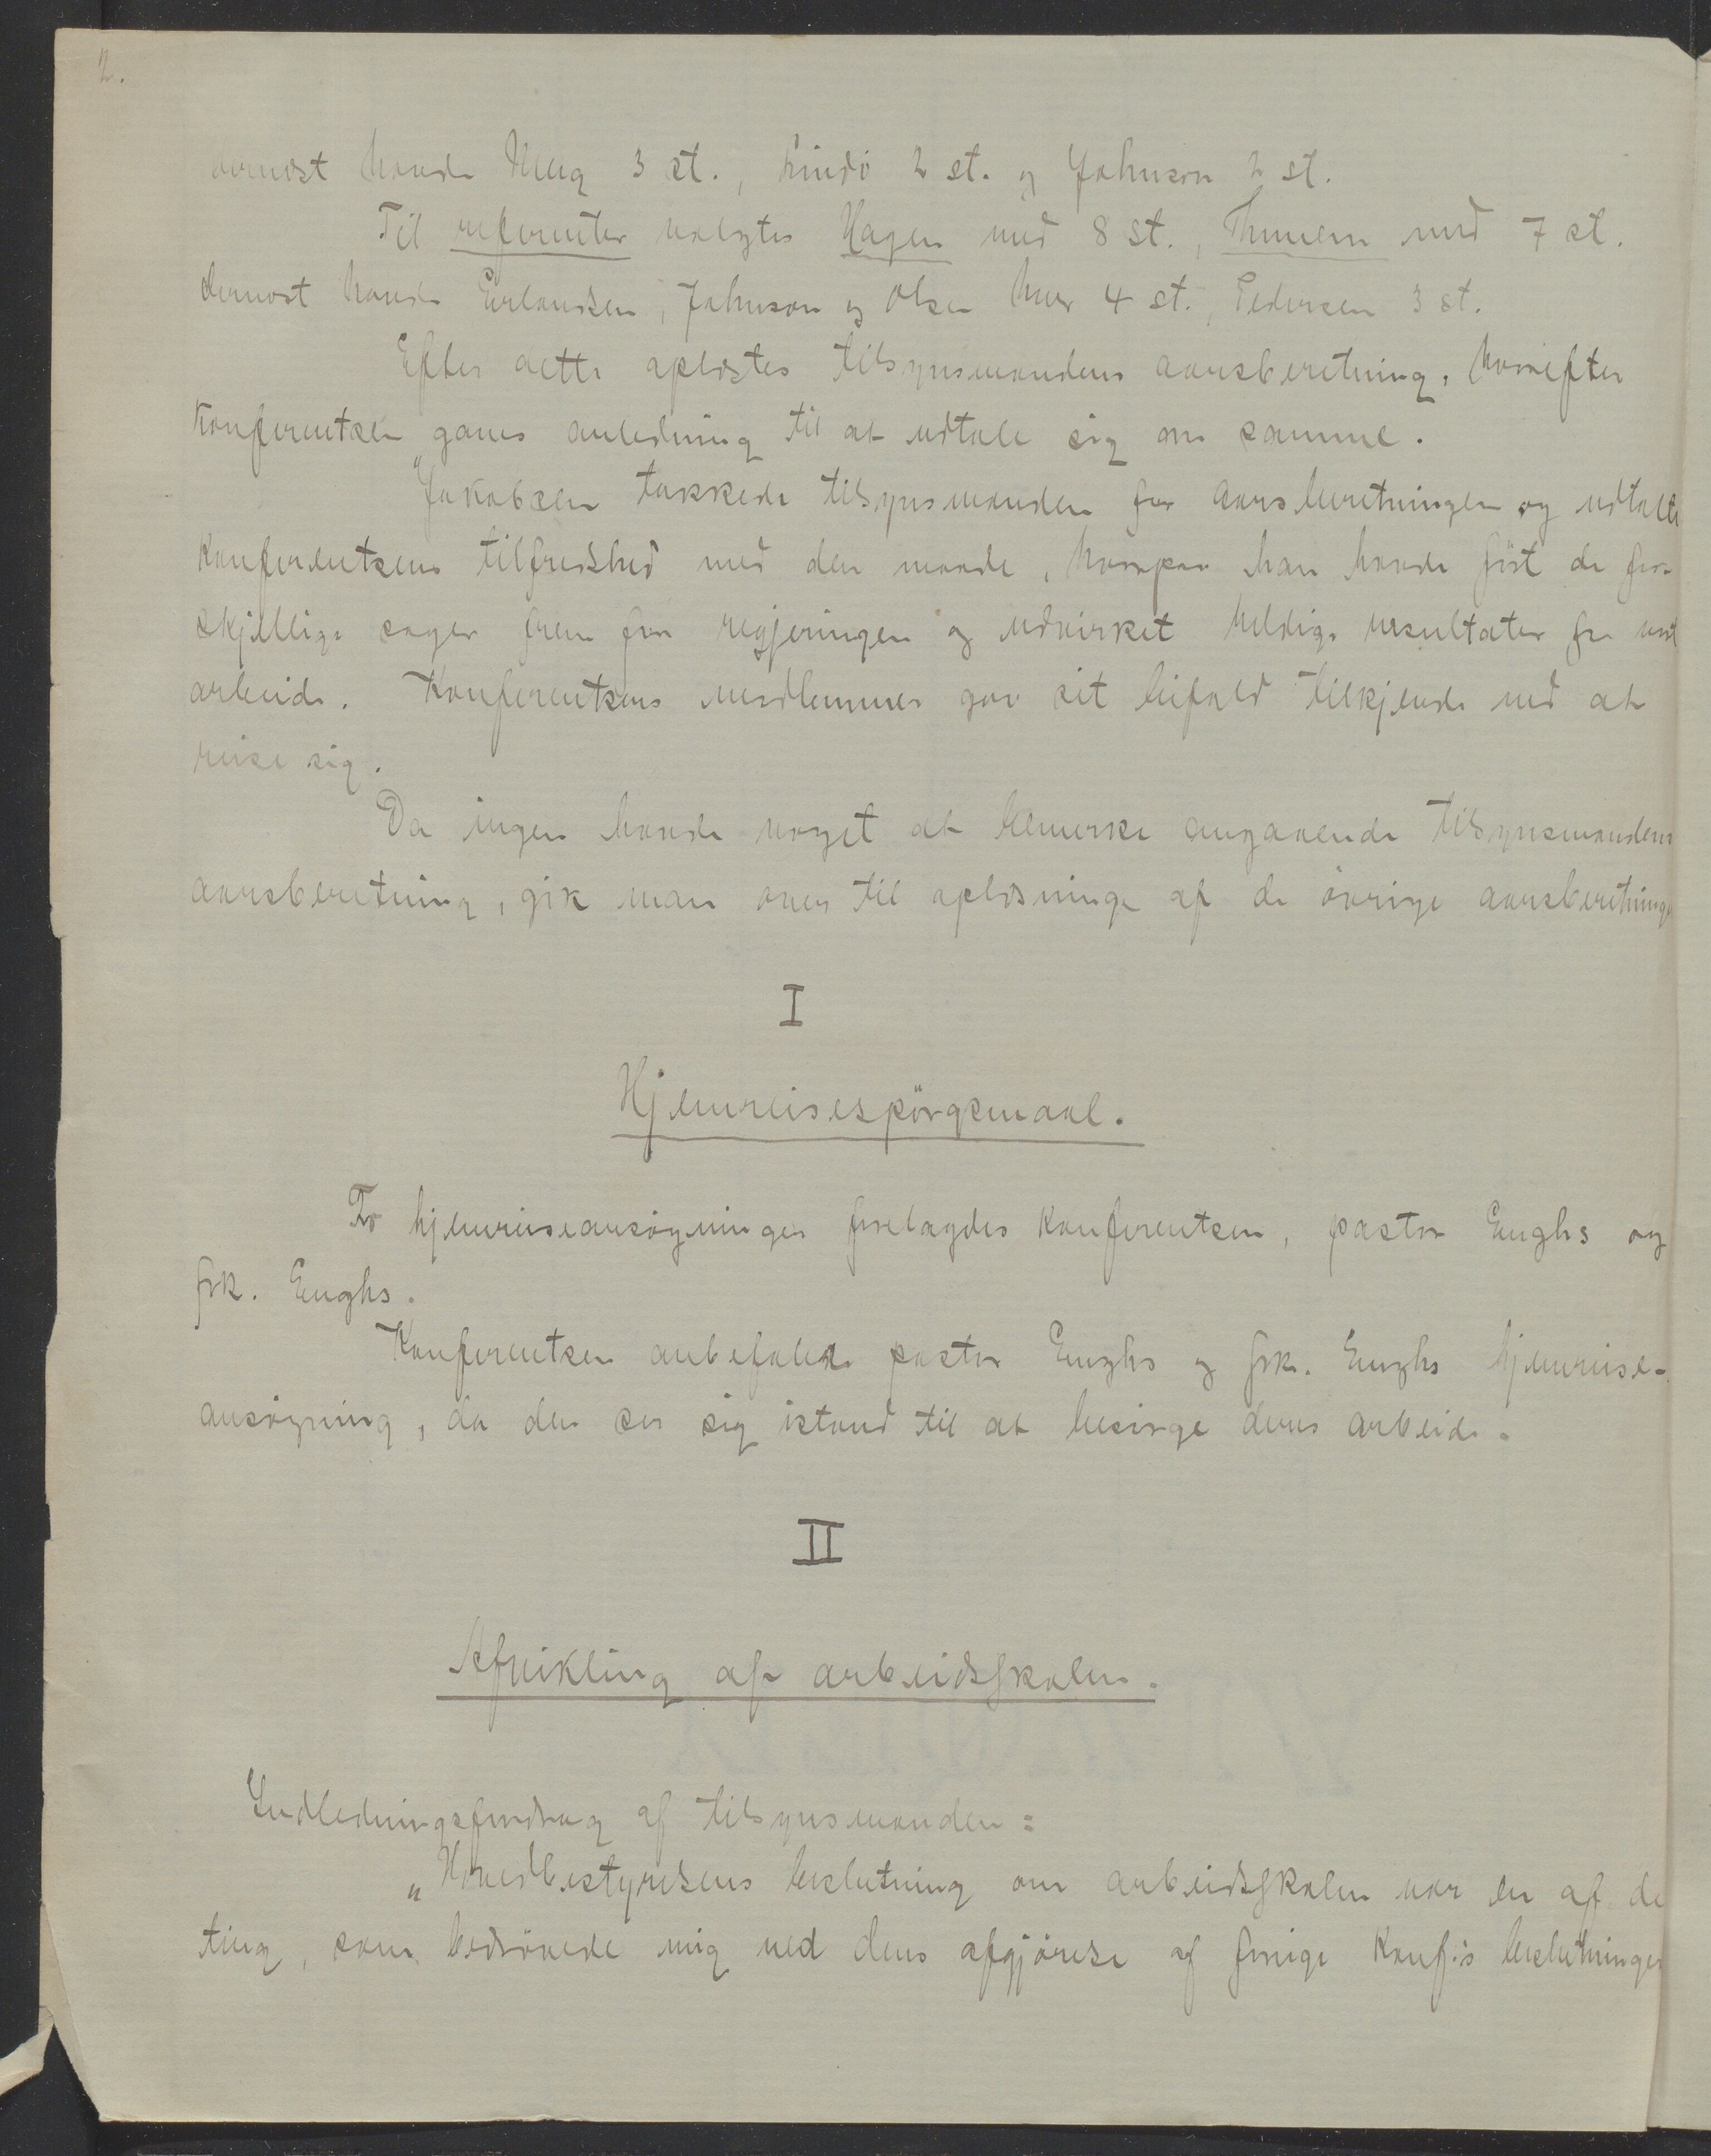 2.
dernæst havde Meeg 3 st., Lindø 2 st. og Johnson 2 st.
Til referenter valgtes Hagen med 8 st., Thunem med 7 st.
dernæst havde Erlandsen, Johnson og Olsen hver 4 st., Pedersen 3 st.
Efter dette oplæstes tilsynsmandens aarsberetning, hvorefter
Konferentsen gaves anledning til at udtale sig om samme.
Jakobsen takkede tilsynsmanden for aarsberetningen og udtalte
Konferentsens tilfredshed med den maade, hvorpaa han havde ført de for-
skjellige sager frem for regjeringen og udvirket heldige resultater for vort
arbeide. Konferentsens medlemmer gav sit bifald tilkjende ved at
reise sig.
Da ingen havde noget at bemerke angaaende tilsynsmandens
aarsberetning, gik man over til oplæsninge af de øvrige aarsberetninger
I
Hjemreisespörgsmaal.
To hjemreiseansøgninger forelagdes Konferentsen, pastor Enghs og
frk. Enghs.
Konferentsen anbefaler pastor Enghs og frk. Enghs hjemreise-
ansøgning, da den ser sig istand til at besørge deres arbeide.
II
Afvikling af arbeidsskolen.
Indledningsforedrag af tilsynsmanden:
„Hovedbestyrelsens beslutning om arbeidsskolen var en af de
ting, som bedrøvede mig ved dens afgjørelse af forrige Konf:s beslutninger